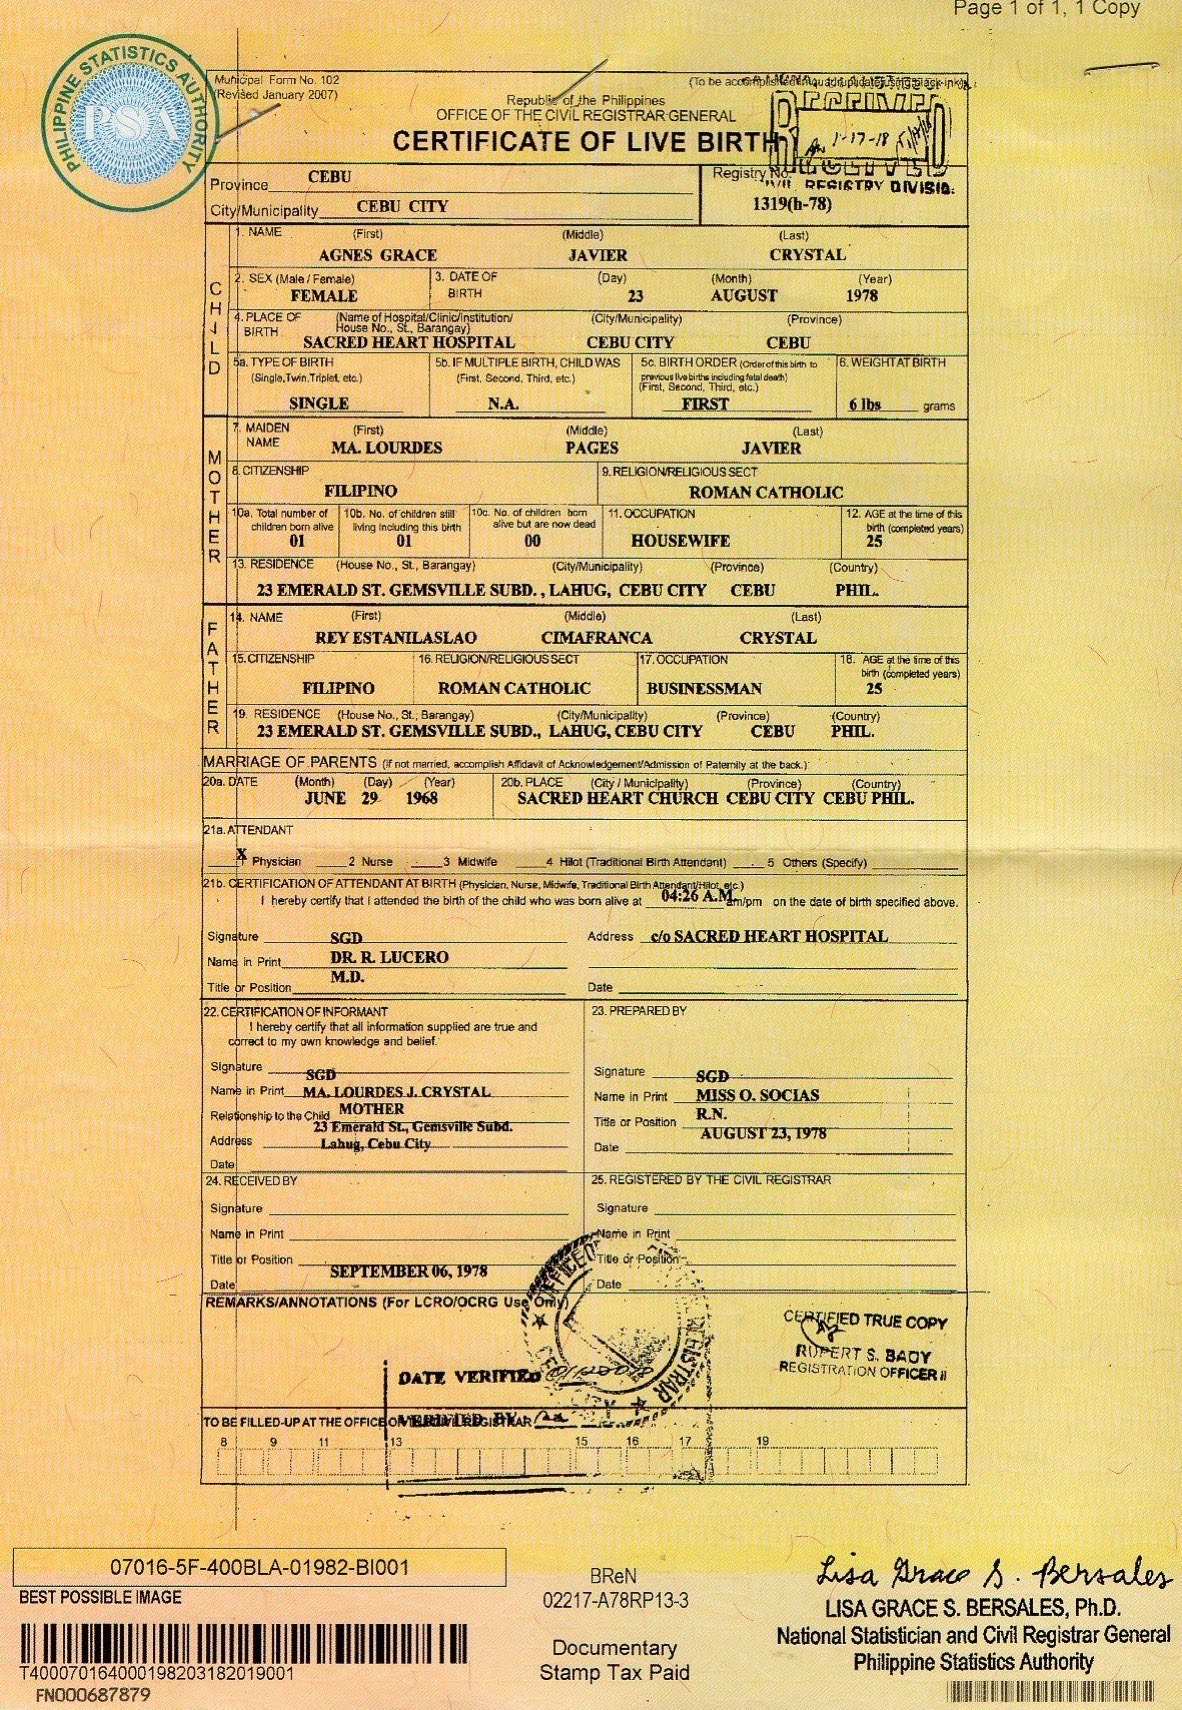 Page 1 of 1, 1 Copy
PHILIPPINE STATISTICS AUTHORITY
PSA
Municipal Form No. 102
(Revised January 2007)
(To be accomplished in quadruplicate using black ink)
Republic of the Philippines
OFFICE OF THE CIVIL REGISTRAR GENERAL
CERTIFICATE OF LIVE BIRTH
RECEIVED
1-17-18
CIVIL REGISTRY DIVISIO
Province CEBU
City/Municipality CEBU CITY
Registry No.
1319(h-78)
CHILD
1. NAME (First) (Middle) (Last)
AGNES GRACE JAVIER CRYSTAL
2. SEX (Male / Female) 3. DATE OF BIRTH (Day) (Month) (Year)
FEMALE 23 AUGUST 1978
4. PLACE OF BIRTH (Name of Hospital/Clinic/Institution/ House No., St., Barangay) (City/Municipality) (Province)
SACRED HEART HOSPITAL CEBU CITY CEBU
5a. TYPE OF BIRTH (Single,Twin,Triplet, etc.) 5b. IF MULTIPLE BIRTH, CHILD WAS (First, Second, Third, etc.) 5c. BIRTH ORDER (Order of this birth to previous live births including fetal death) (First, Second, Third, etc.) 6. WEIGHT AT BIRTH
SINGLE N.A. FIRST 6 lbs grams
MOTHER
7. MAIDEN NAME (First) (Middle) (Last)
MA. LOURDES PAGES JAVIER
8. CITIZENSHIP 9. RELIGION/RELIGIOUS SECT
FILIPINO ROMAN CATHOLIC
10a. Total number of children born alive 10b. No. of children still living including this birth 10c. No. of children born alive but are now dead 11. OCCUPATION 12. AGE at the time of this birth (completed years)
01 01 00 HOUSEWIFE 25
13. RESIDENCE (House No., St., Barangay) (City/Municipality) (Province) (Country)
23 EMERALD ST. GEMSVILLE SUBD. , LAHUG, CEBU CITY CEBU PHIL.
FATHER
14. NAME (First) (Middle) (Last)
REY ESTANILASLAO CIMAFRANCA CRYSTAL
15. CITIZENSHIP 16. RELIGION/RELIGIOUS SECT 17. OCCUPATION 18. AGE at the time of this birth (completed years)
FILIPINO ROMAN CATHOLIC BUSINESSMAN 25
19. RESIDENCE (House No., St., Barangay) (City/Municipality) (Province) (Country)
23 EMERALD ST. GEMSVILLE SUBD., LAHUG, CEBU CITY CEBU PHIL.
MARRIAGE OF PARENTS (If not married, accomplish Affidavit of Acknowledgement/Admission of Paternity at the back.)
20a. DATE (Month) (Day) (Year) 20b. PLACE (City / Municipality) (Province) (Country)
JUNE 29 1968 SACRED HEART CHURCH CEBU CITY CEBU PHIL.
21a. ATTENDANT
X Physician 2 Nurse 3 Midwife 4 Hilot (Traditional Birth Attendant) 5 Others (Specify)
21b. CERTIFICATION OF ATTENDANT AT BIRTH (Physician, Nurse, Midwife, Traditional Birth Attendant/Hilot, etc.)
I hereby certify that I attended the birth of the child who was born alive at 04:26 A.M. am/pm on the date of birth specified above.
Signature SGD Address c/o SACRED HEART HOSPITAL
Name in Print DR. R. LUCERO
Title or Position M.D. Date
22. CERTIFICATION OF INFORMANT
I hereby certify that all information supplied are true and
correct to my own knowledge and belief.
Signature SGD
Name in Print MA. LOURDES J. CRYSTAL
Relationship to the Child MOTHER
Address 23 Emerald St., Gemsville Subd.
Lahug, Cebu City
Date
23. PREPARED BY
Signature SGD
Name in Print MISS O. SOCIAS
Title or Position R.N.
Date AUGUST 23, 1978
24. RECEIVED BY
Signature
Name in Print
Title or Position
Date SEPTEMBER 06, 1978
25. REGISTERED BY THE CIVIL REGISTRAR
Signature
Name in Print
Title or Position
Date
REMARKS/ANNOTATIONS (For LCRO/OCRG Use Only)
CERTIFIED TRUE COPY
RUPERT S. BADY
REGISTRATION OFFICER II
DATE VERIFIED
VERIFIED BY
TO BE FILLED-UP AT THE OFFICE OF THE CIVIL REGISTRAR
8 9 11 13 15 16 17 19
07016-5F-400BLA-01982-BI001
BEST POSSIBLE IMAGE
T400070164000198203182019001
FN000687879
BReN
02217-A78RP13-3
Documentary
Stamp Tax Paid
Lisa Grace S. Bersales
LISA GRACE S. BERSALES, Ph.D.
National Statistician and Civil Registrar General
Philippine Statistics Authority